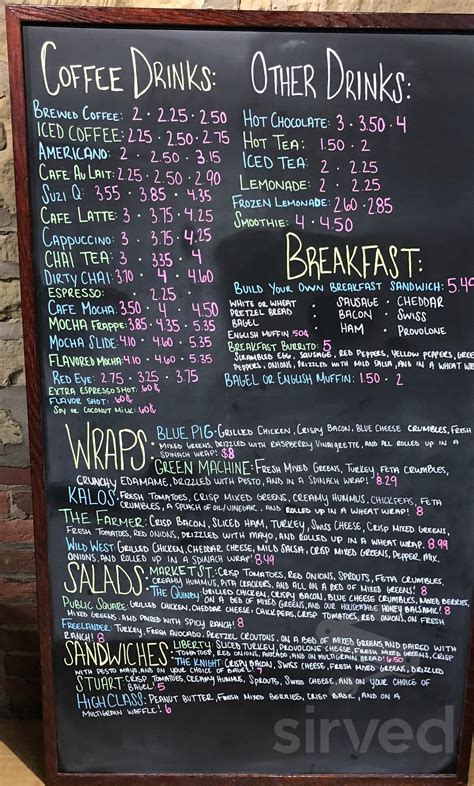 COFFEE DRINKS:
BREWED COFFEE: 2 · 2.25 · 2.50
ICED COFFEE: 2.25 · 2.50 · 2.75
AMERICANO: 2 · 2.50 · 3.15
CAFE AU LAIT: 2.25 · 2.50 · 2.90
SUZI Q: 3.55 · 3.85 · 4.35
CAFE LATTE: 3 · 3.75 · 4.25
CAPPUCCINO: 3 · 3.75 · 4.25
CHAI TEA: 3 · 3.35 · 4
DIRTY CHAI: 3.70 · 4 · 4.60
ESPRESSO: 2 · 2.25
CAFE MOCHA: 3.50 · 4 · 4.50
MOCHA FRAPPE: 3.85 · 4.35 · 5.35
MOCHA SLIDE: 4.10 · 4.60 · 5.35
FLAVORED MOCHA: 4.10 · 4.60 · 5.35
RED EYE: 2.75 · 3.25 · 3.75
EXTRA ESPRESSO SHOT: 60¢
FLAVOR SHOT: 60¢
SOY OR COCONUT MILK: 60¢
OTHER DRINKS:
HOT CHOCOLATE: 3 · 3.50 · 4
HOT TEA: 1.50 · 2
ICED TEA: 2 · 2.25
LEMONADE: 2 · 2.25
FROZEN LEMONADE: 2.60 · 2.85
SMOOTHIE: 4 · 4.50
BREAKFAST:
BUILD YOUR OWN BREAKFAST SANDWICH: 5.49
WHITE OR WHEAT · SAUSAGE · CHEDDAR
PRETZEL BREAD · BACON · SWISS
BAGEL · HAM · PROVOLONE
ENGLISH MUFFIN 50¢
BREAKFAST BURRITO: 5
SCRAMBLED EGG, SAUSAGE, RED PEPPERS, YELLOW PEPPERS, GREEN
PEPPERS, ONIONS, DRIZZLED WITH MILD SALSA, AND IN A WHEAT W
BAGEL OR ENGLISH MUFFIN: 1.50 · 2
WRAPS: BLUE PIG: GRILLED CHICKEN, CRISPY BACON, BLUE CHEESE CRUMBLES, FRESH
MIXED GREENS, DRIZZLED WITH RASPBERRY VINAIGRETTE, AND ALL ROLLED UP IN A
SPINACH WRAP! $8
GREEN MACHINE: FRESH MIXED GREENS, TURKEY, FETA CRUMBLES,
CRUNCHY EDAMAME, DRIZZLED WITH PESTO, AND IN A SPINACH WRAP! 8.29
KALOS: FRESH TOMATOES, CRISP MIXED GREENS, CREAMY HUMMUS, CHICKPEAS, FETA
CRUMBLES, A SPLASH OF OIL/VINEGAR, AND ROLLED UP IN A WHEAT WRAP! 8
THE FARMER: CRISP BACON, SLICED HAM, TURKEY, SWISS CHEESE, CRISP MIXED GREENS,
FRESH TOMATOES, RED ONIONS, DRIZZLED WITH MAYO, AND ROLLED UP IN A WHEAT WRAP! 8.99
WILD WEST: GRILLED CHICKEN, CHEDDAR CHEESE, MILD SALSA, CRISP MIXED GREENS, PEPPER MIX,
ONIONS, AND ROLLED UP IN A SPINACH WRAP! 8.49
SALADS: MARKET ST: CRISP TOMATOES, RED ONIONS, SPROUTS, FETA CRUMBLES,
CREAMY HUMMUS, PITA CRACKERS, AND ALL ON A BED OF MIXED GREENS! 8
THE QUINBY: GRILLED CHICKEN, CRISPY BACON, BLUE CHEESE CRUMBLES, MIXED BERRIES,
ON A BED OF MIXED GREENS, AND OUR HOUSEMADE HONEY BALSAMIC! 8
PUBLIC SQUARE: GRILLED CHICKEN, CHEDDAR CHEESE, CHICKPEAS, CRISP TOMATOES, RED ONIONS, ON FRESH
MIXED GREENS, AND PAIRED WITH SPICY RANCH! 8
FREELANDER: TURKEY, FRESH AVOCADO, PRETZEL CROUTONS, ON A BED OF MIXED GREENS AND PAIRED WITH
RANCH! 8
SANDWICHES: LIBERTY: SLICED TURKEY, PROVOLONE CHEESE, FRESH MIXED GREENS, CRISP
TOMATOES, RED ONIONS, AVOCADO, AND ON MULTIGRAIN BREAD! 6.50
THE KNIGHT: CRISPY BACON, SWISS CHEESE, FRESH MIXED GREENS, DRIZZLED
WITH PESTO MAYO, AND ON YOUR CHOICE OF BAGEL!
STUART: CRISP TOMATOES, CREAMY HUMMUS, SPROUTS, SWISS CHEESE, AND ON YOUR CHOICE OF
BAGEL! 5
HIGH CLASS: PEANUT BUTTER, FRESH MIXED BERRIES, CRISP BASIL, AND ON A
MULTIGRAIN WAFFLE! 6
sirved